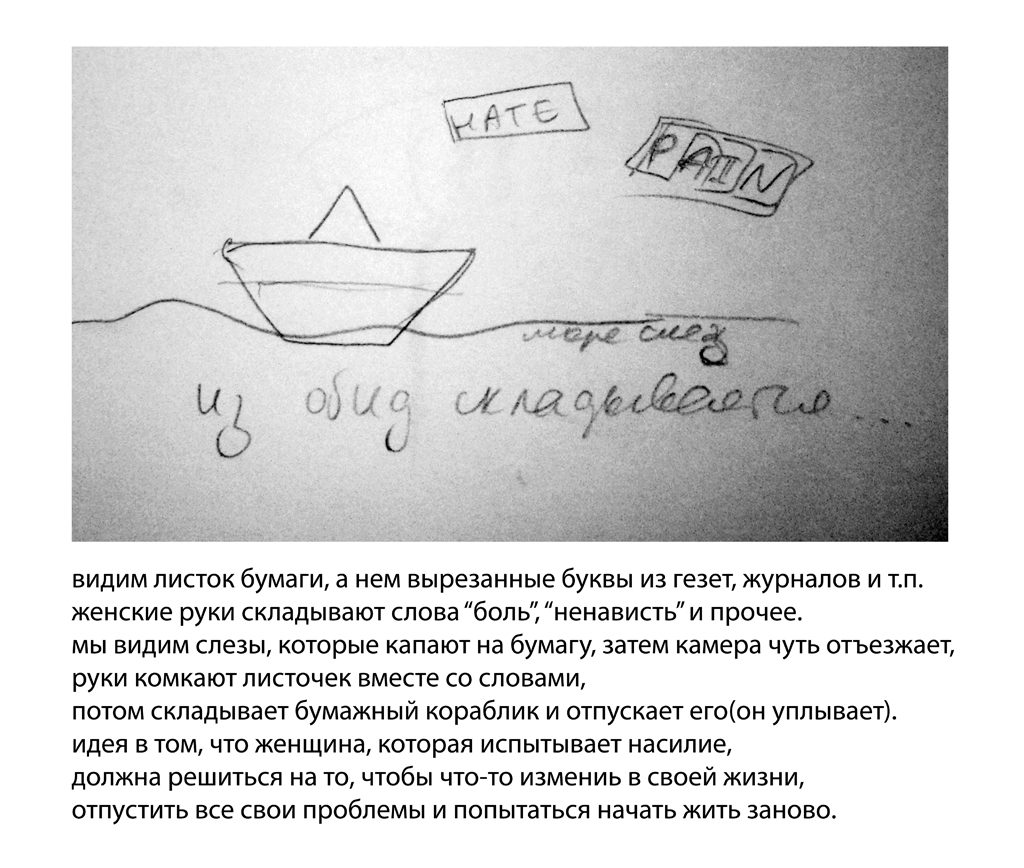 HATE
PAIN
море слез
из обид складывается...
видим листок бумаги, а нем вырезанные буквы из гезет, журналов и т.п.
женские руки складывают слова “боль”, “ненависть” и прочее.
мы видим слезы, которые капают на бумагу, затем камера чуть отъезжает,
руки комкают листочек вместе со словами,
потом складывает бумажный кораблик и отпускает его(он уплывает).
идея в том, что женщина, которая испытывает насилие,
должна решиться на то, чтобы что-то измениь в своей жизни,
отпустить все свои проблемы и попытаться начать жить заново.